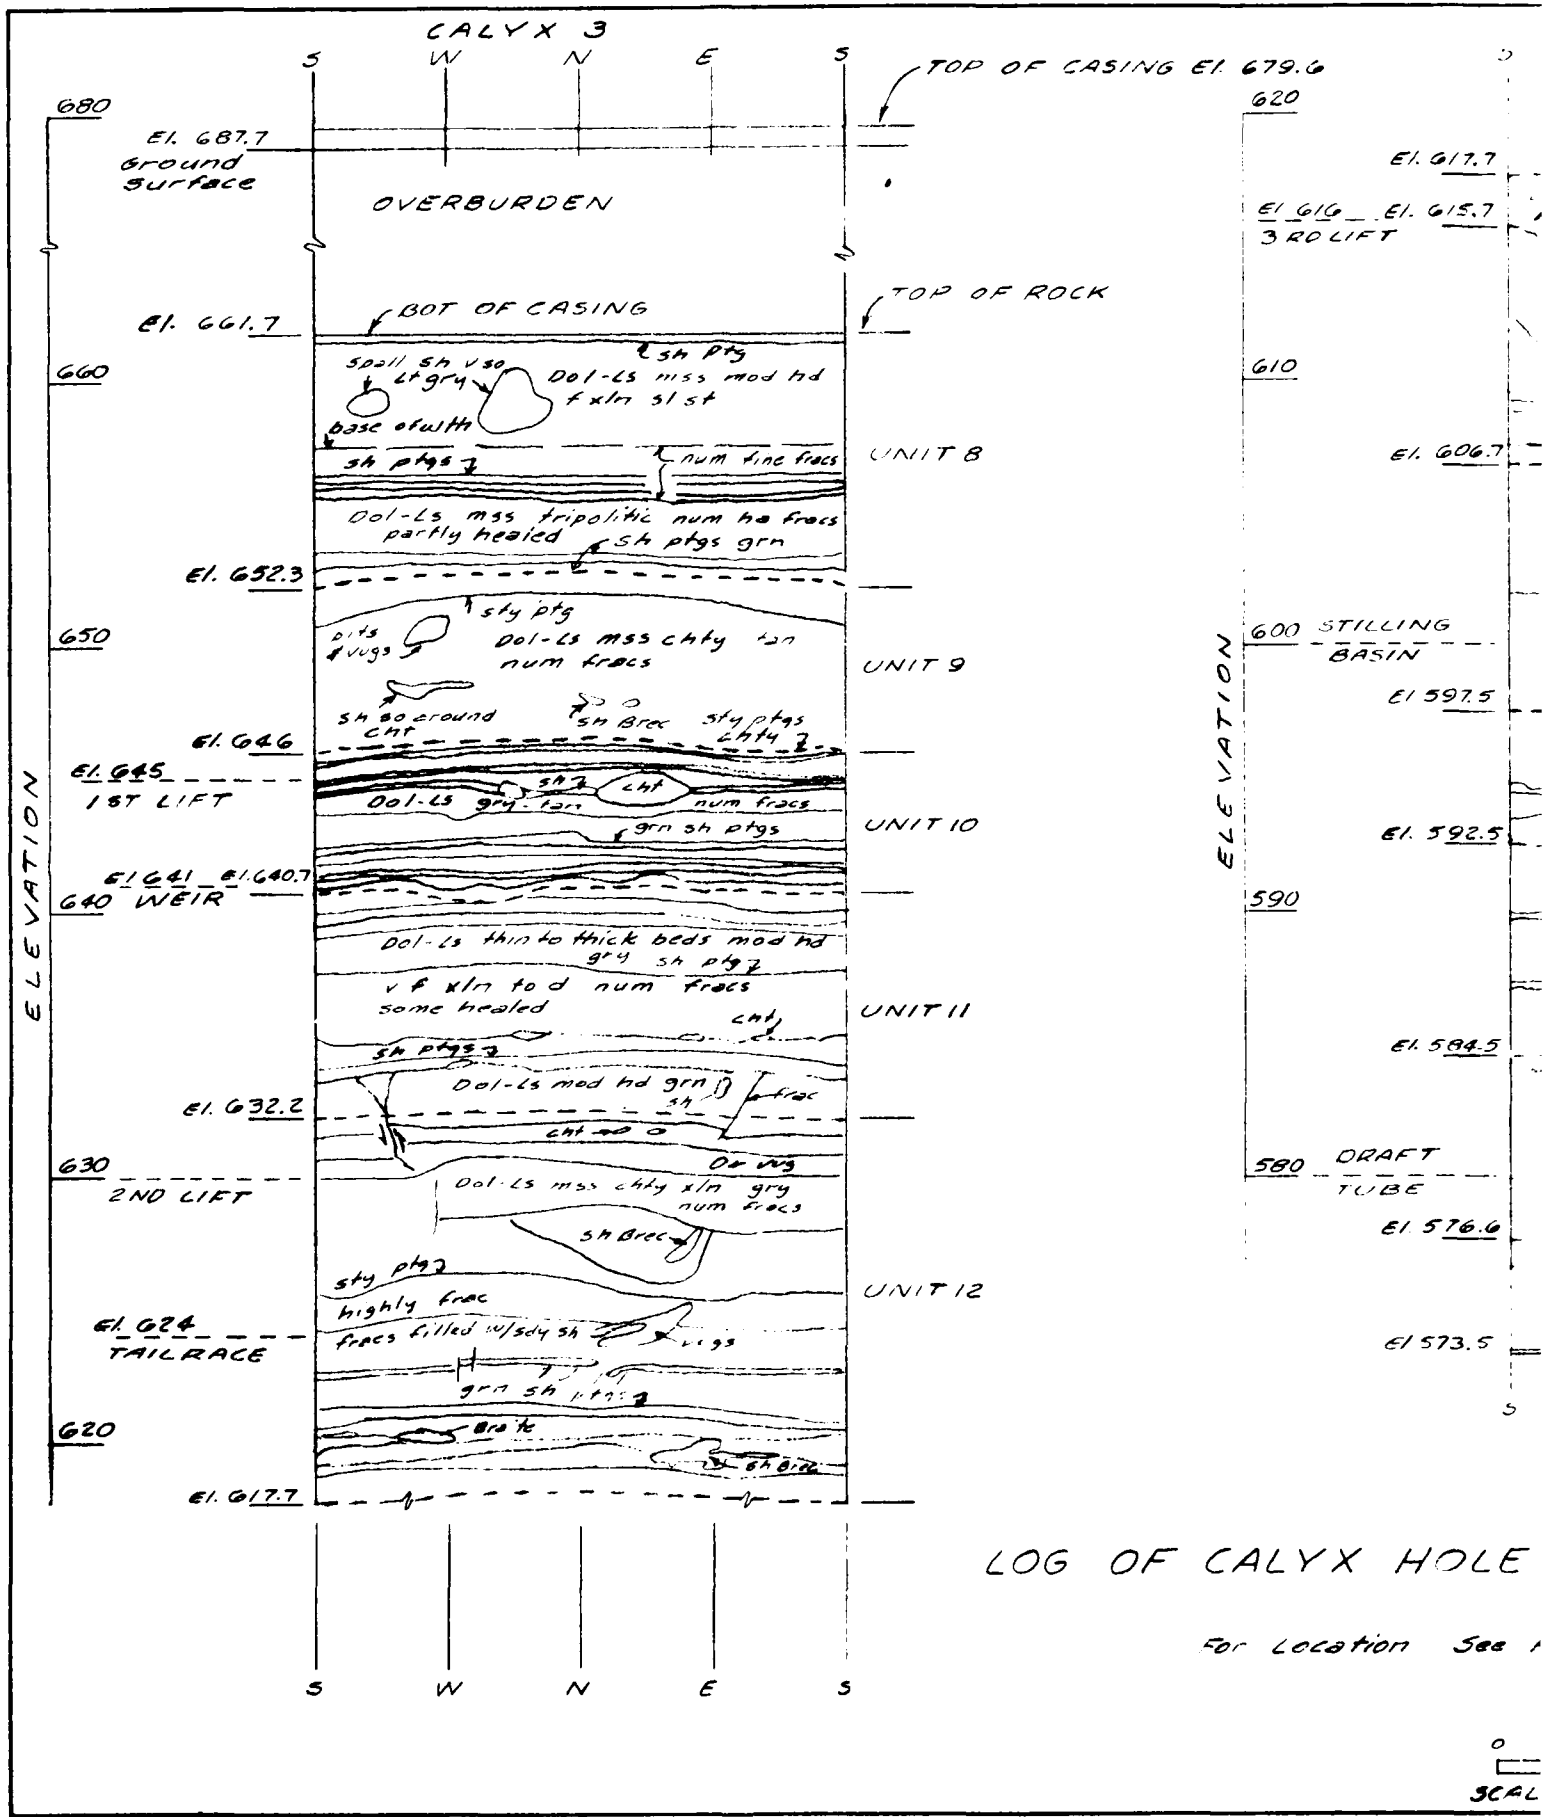 CALYX 3
S W N E S
TOP OF CASING El. 679.6
680
El. 687.7
Ground
Surface
OVERBURDEN
El. 661.7
BOT OF CASING
TOP OF ROCK
sh ptg
660
spall sh v so
Lt gry
Dol-Ls mss mod hd
f xln sl st
base of wth
sh ptgs
num fine fracs
UNIT 8
Dol-Ls mss tripolitic num ha fracs
partly healed
sh ptgs grn
El. 652.3
sty ptg
650
pits
& vugs
Dol-Ls mss chty tan
num fracs
UNIT 9
sh so around
cht
sh Brec
sty ptgs
chty
El. 646
El. 645
1ST LIFT
sh
cht
Dol-Ls gry-tan num fracs
grn sh ptgs
UNIT 10
El 641 El. 640.7
WEIR
640
Dol-Ls thin to thick beds mod hd
gry sh ptg
v f xln to d num fracs
some healed
UNIT 11
cht
sh ptgs
Dol-Ls mod hd grn
sh
frac
El. 632.2
cht
630
2ND LIFT
Dr vug
Dol-Ls mss chty xln gry
num fracs
sh Brec
sty ptg
UNIT 12
highly frac
El. 624
TAILRACE
fracs filled w/sdy sh
vugs
grn sh ptgs
620
sh Brec
El. 617.7
ELEVATION
S W N E S
S
620
El. 617.7
El 616 El. 615.7
3 RD LIFT
610
El. 606.7
600 STILLING
BASIN
El 597.5
El. 592.5
590
El. 584.5
580 DRAFT
TUBE
El. 576.6
El 573.5
S
ELEVATION
LOG OF CALYX HOLE
For Location See
0
SCAL